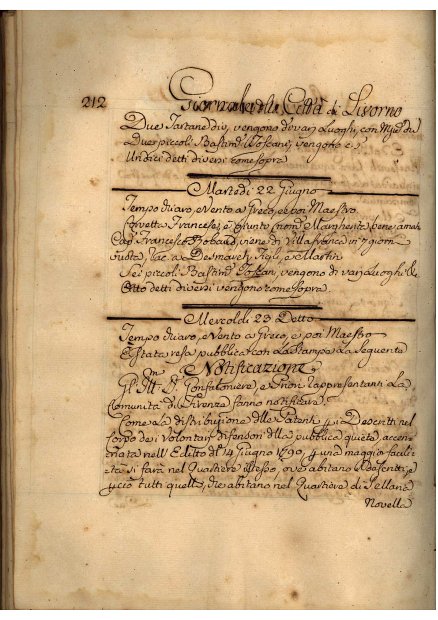 212 Giornale della Città di Livorno
Due Tartane div., vengono da varj Luoghi, con
Due piccoli Bastim. Toscani, vengono e
Undici detti diversi come sopra
Martedì 22 Giugno
Tempo chiaro, e Vento a Greco, e poi Maestro
Corvetta Francese, nom. Margherita bene amata
Cap. Francesco, viene di Villafranca in 7 giorni
Vuota, Rac. a Desmarets Figli, e Martin
Sei piccoli Bastim. Toscan, vengono di varj Luoghi
Otto detti diversi vengono come sopra
Mercoldì 23 Detto
Tempo chiaro, e Vento a Greco, e poi Maestro
È stata resa pubblica con la Stampa la Seguente
Notificazione
Gl' Ill. Gonfaloniere, e rappresentanti La
Comunità di Firenze fanno notificare
Come la distribuzione delle Patenti Descritti nel
Corpo dei Volontarj difensori della pubblica quiete accen
nata nell' Editto de' 14 Giugno 1790, p una maggior facili
tà si farà nel Quartiere istesso, ove abitano i Descritti, e
p ciò tutti quelli, che abitano nel Quartiere di S.
Novella